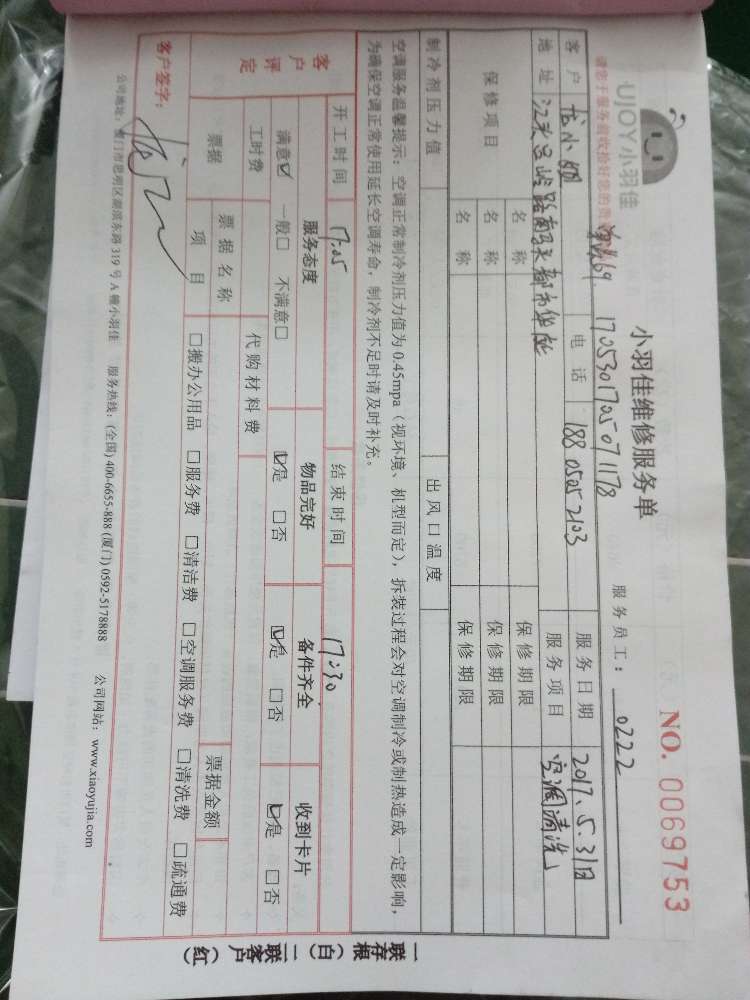 UJOY小羽佳
小羽佳维修服务单
NO. 0069753
请您于服务前收拾好您的贵
1705301705071178
服务员工： 0222
客户 小姐 电话 18805052103 服务日期 2017.5.31日
地址 都市华 服务项目 空调清洗
保修项目 名称 保修期限
名称 保修期限
名称 保修期限
制冷剂压力值 出风口温度
空调服务温馨提示：空调正常制冷剂压力值为0.45mpa（视环境、机型而定），拆装过程会对空调制冷或制热造成一定影响，
为确保空调正常使用延长空调寿命，制冷剂不足时请及时补充。
开工时间 17:05 结束时间 17:30
客户评定 服务态度 物品完好 备件齐全 收到卡片
满意☑ 一般□ 不满意□ ☑是 □否 ☑是 □否 ☑是 □否
工时费 代购材料费
票据 票据名称 票据金额
项目 □搬办公用品 □服务费 □清洁费 □空调服务费 □清洗费 □疏通费
客户签字：
公司地址：厦门市思明区湖滨东路319号A幢小羽佳 服务热线：(全国) 400-6655-888 (厦门) 0592-5178888 公司网站：www.xiaoyujia.com
一联存根（白）二联客户（红）